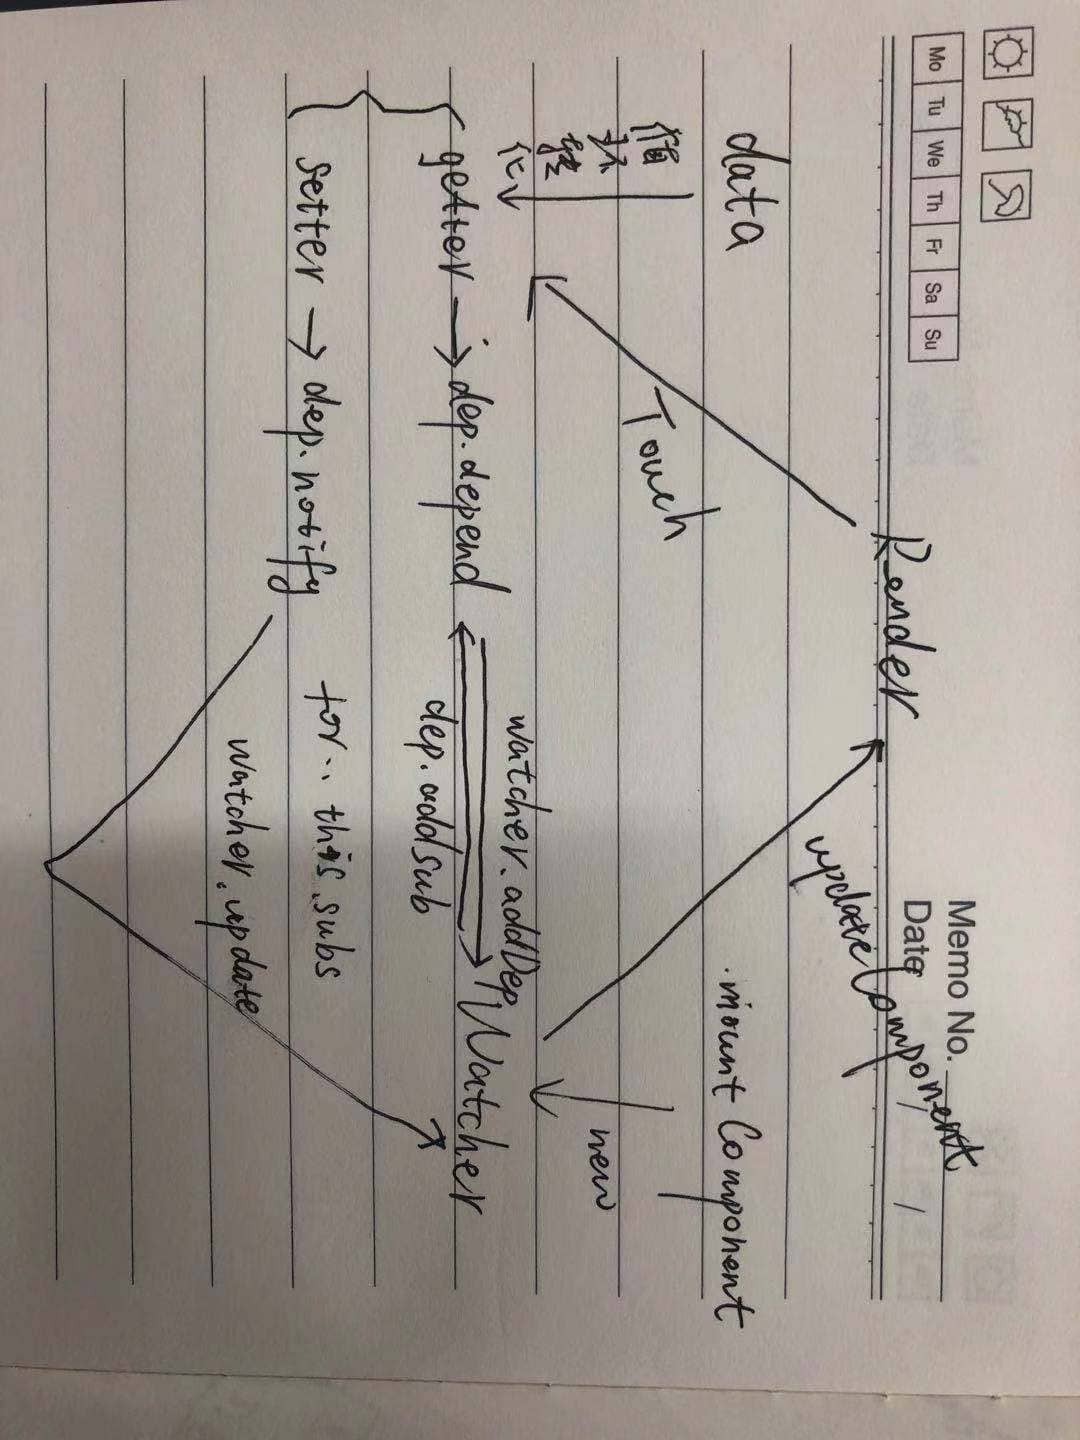 Mo Tu We Th Fr Sa Su
Memo No.
Date / /
Render
updateComponent
data
mountComponent
循环转化
Touch
new
watcher.addDep
getter → dep.depend
Watcher
dep.addsub
setter → dep.notify
for.. this.subs
watcher.update